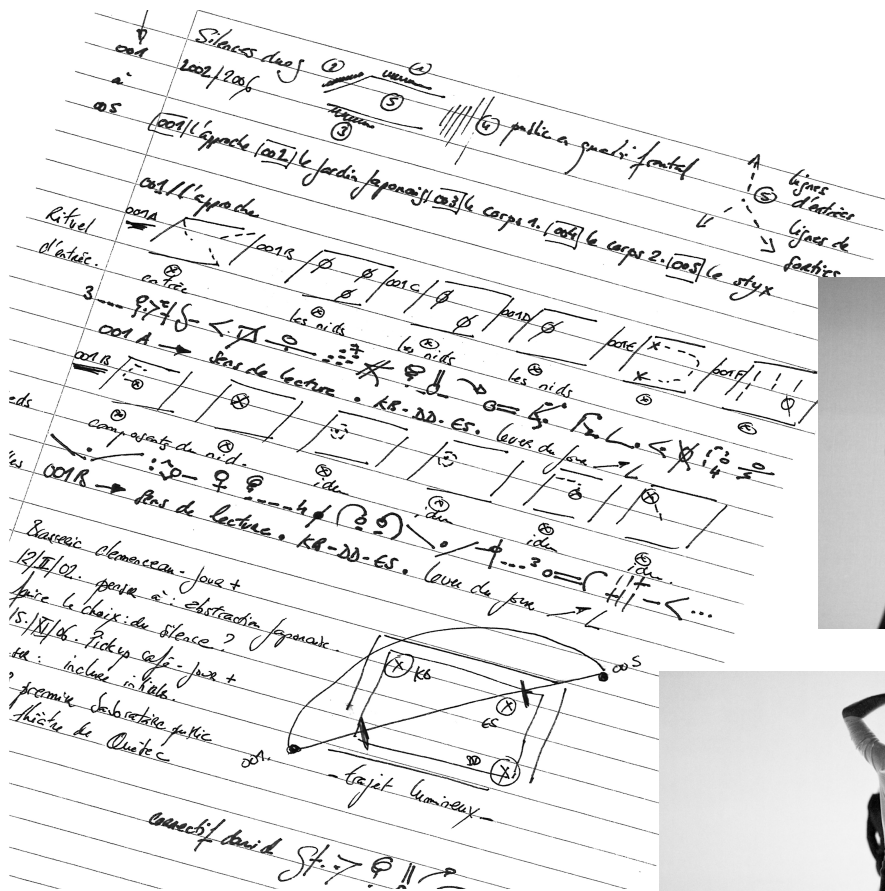 001
à
005
Silences duos
2002/2006
2 1
5
3
4 public en quadri frontal
5 lignes d'entrées
lignes de sorties
001/l'approche 002/le jardin japonais/003/le corps 1. 004/le corps 2. 005/le styx
001/l'approche
Rituel
d'entrée.
001A /001B /001C /001D /001E /001F
entrée les nids les nids les nids
3
001 A → sens de lecture. KB-DD-ES. lever du jour → L
4
001B
composants du nid. idem idem idem idem
4 3
001B → sens de lecture. KB-DD-ES. lever du jour → L
Brasserie Clemenceau- jour +
12/II/02. penser à: abstraction japonaise.
faire le choix du silence?
15./XI/06. Pickup café- jour +
: inclure
laboratoire public
théâtre de Québec
KB
ES
DD
001.
005
-trajet lumineux-
correctif david